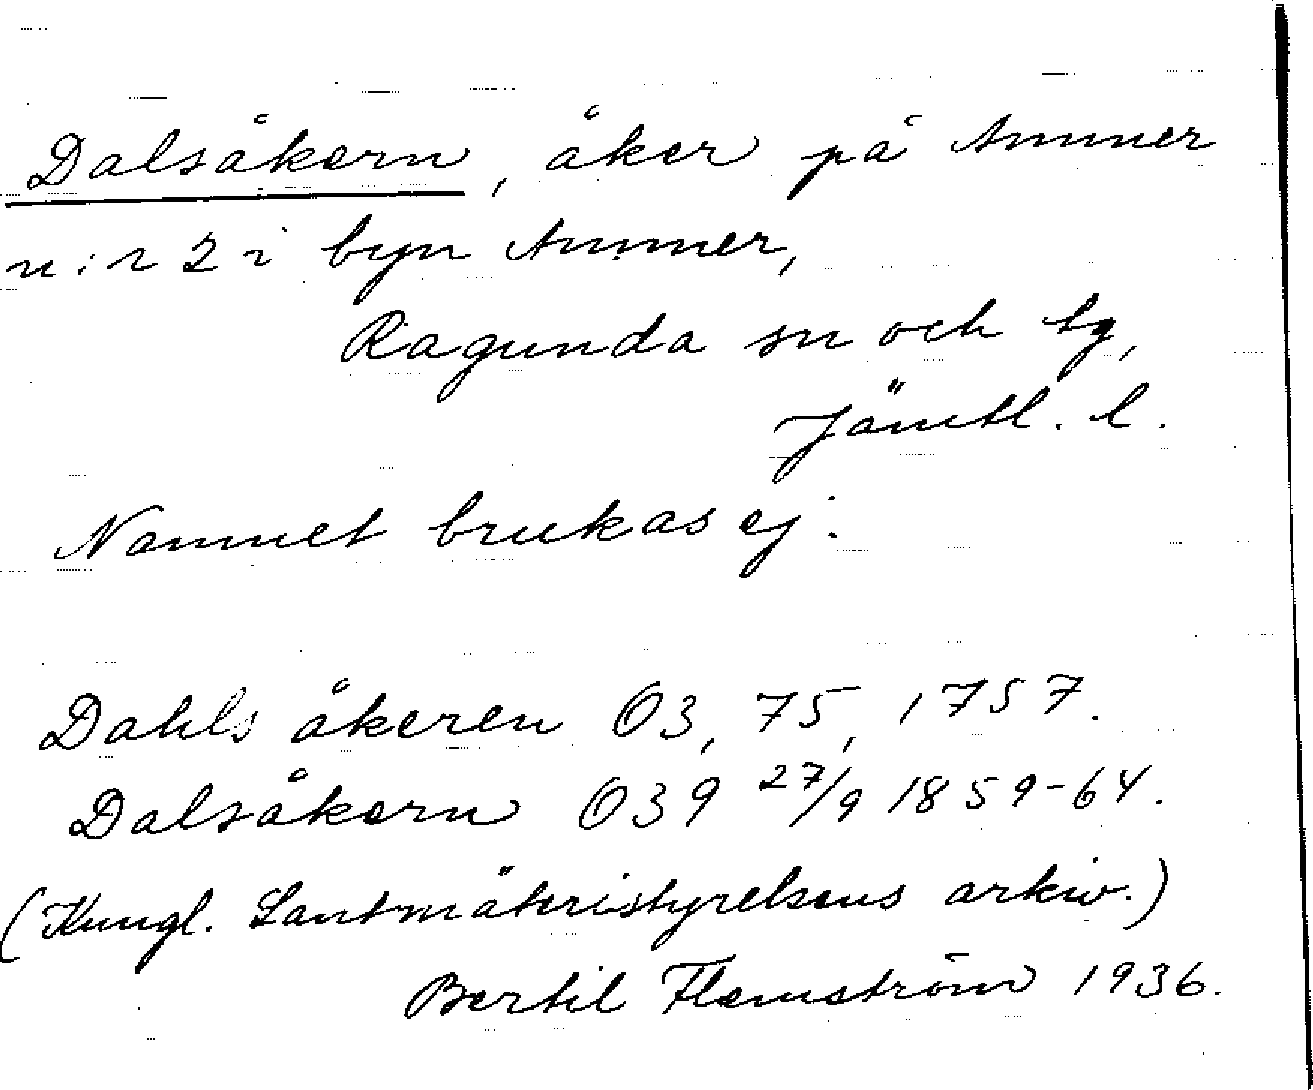 Dalsåkern, åker på Ammer
n:r 2 i byn Ammer,
Ragunda sn och tg,
Jämtl. l.
Namnet brukas ej.
Dahls åkeren O3, 75, 1757.
Dalsåkern O39 27/9 1859-64.
(Kungl. Lantmäteristyrelsens arkiv.)
Bertil Flemström 1936.